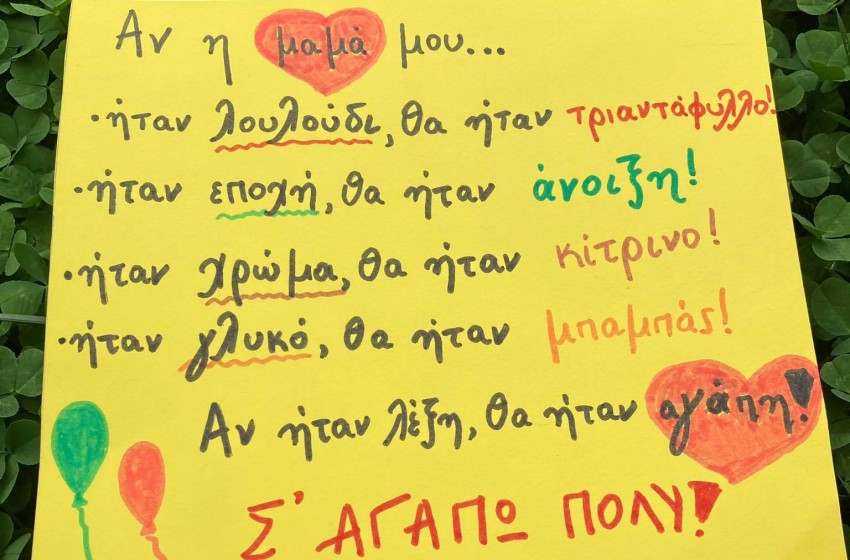 Αν η μαμά μου...
·ήταν λουλούδι, θα ήταν τριαντάφυλλο!
·ήταν εποχή, θα ήταν άνοιξη!
·ήταν χρώμα, θα ήταν κίτρινο!
·ήταν γλυκό, θα ήταν μπαμπάς!
Αν ήταν λέξη, θα ήταν αγάπη!
Σ' ΑΓΑΠΩ ΠΟΛΥ!